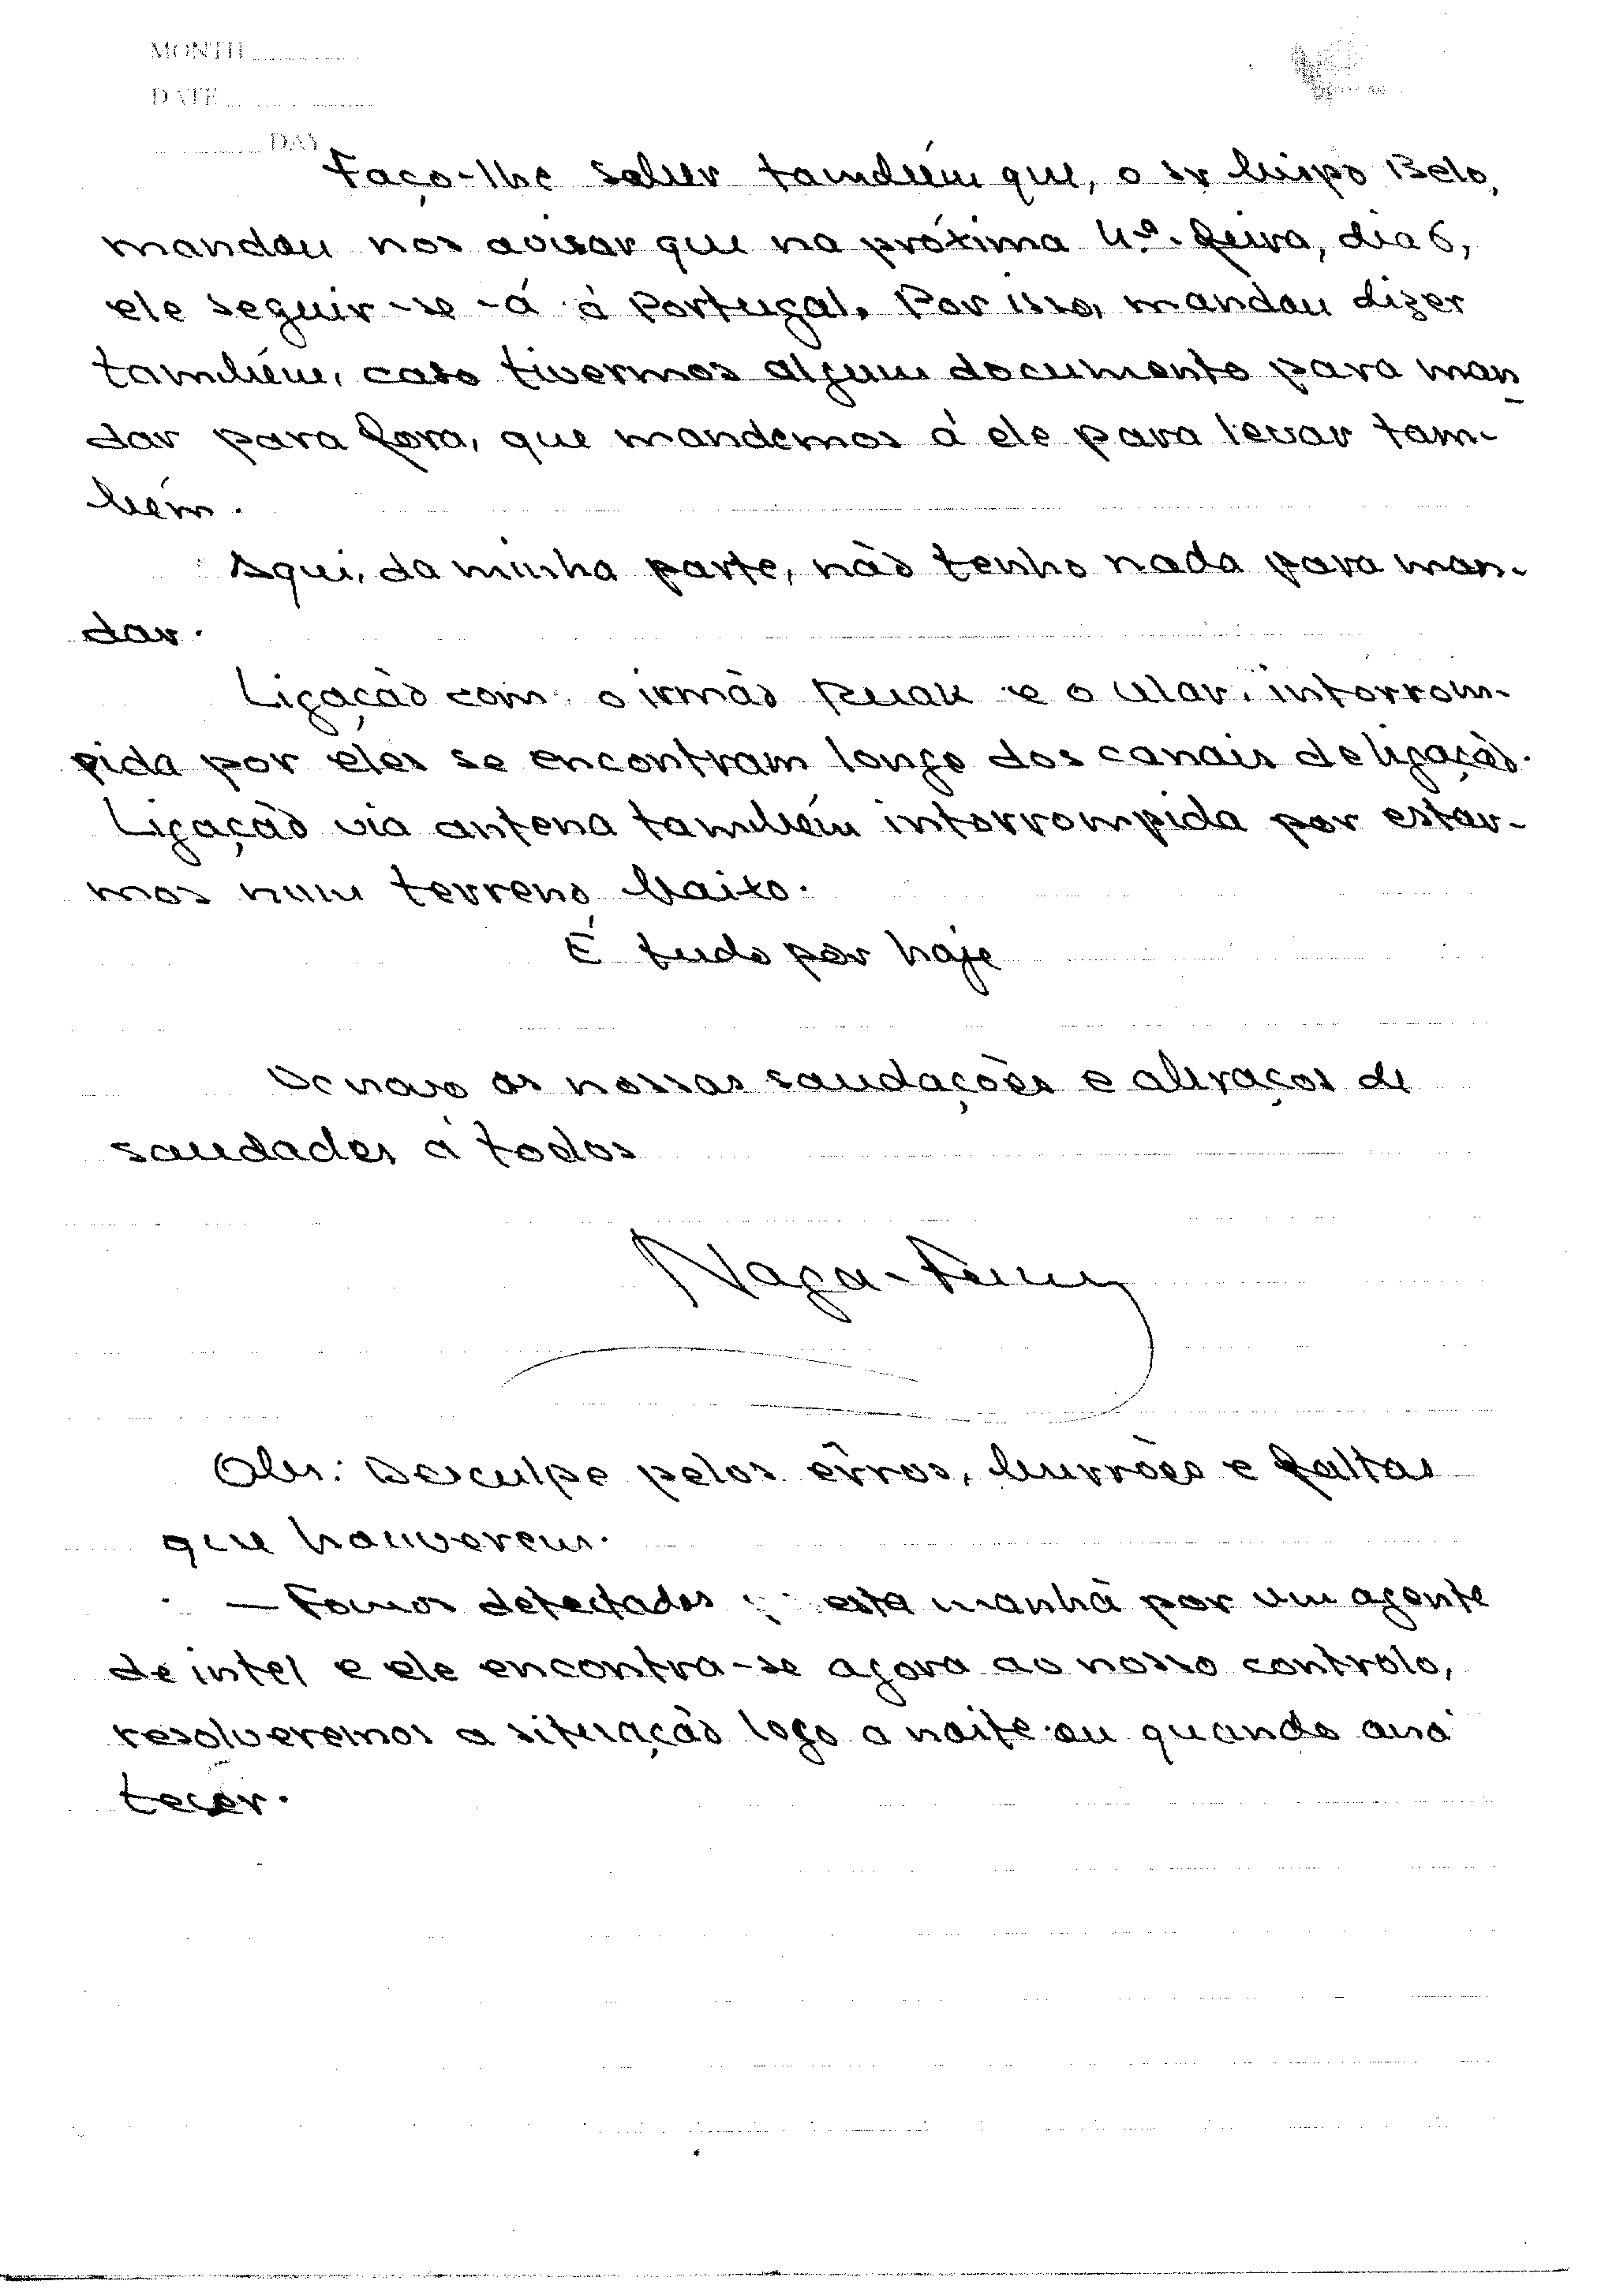 MONTH
DATE
DAY
Faço-lhe saber também que, o sr bispo Belo,
mandou nos avisar que na próxima 4.ª-feira, dia 6,
ele seguir-se-á á Portugal. Por isso, mandou dizer
também, caso tivermos algum documento para man
dar para fora, que mandemos á ele para levar tam-
bém.
Aqui, da minha parte, não tenho nada para man-
dar.
Ligação com o irmão Ruak e o Ular, interrom-
pida por eles se encontram longe dos canais de ligação.
Ligação via antena também interrompida por estar-
mos num terreno baixo.
É tudo por hoje
De novo as nossas saudações e abraços de
saudades á todos
Naga-
Obs.: Desculpe pelos êrros, burrões e faltas
que houverem.
— Fomos detectados esta manhã por um agente
de intel e ele encontra-se agora ao nosso controlo,
resolveremos a situação logo a noite ou quando anoi
tecer.